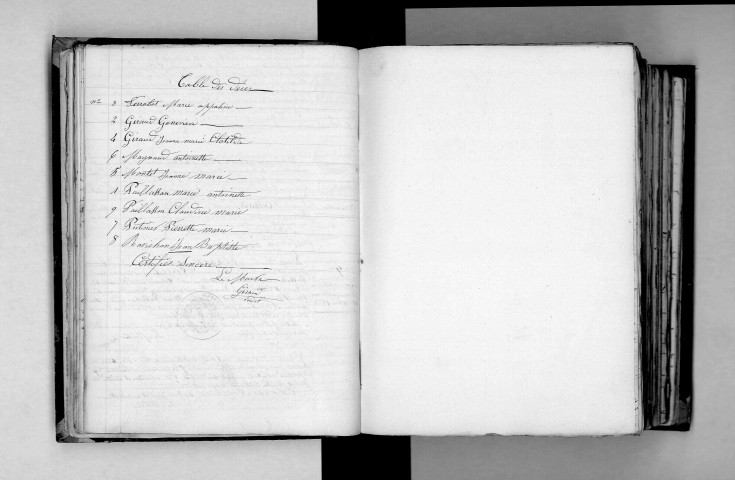 Table des Décès
n° 3 Ferratet Marie
2 Giraud
4 Giraud Jeanne marie Clotilde
6 Maynaud antoinette
5 Montet Jeanne marie
1 Paillasson marie antoinette
9 Paillasson Claudine marie
7 Pierrette marie
8 Jean Baptiste
Certifiée Sincère
Le Maire
Giraud